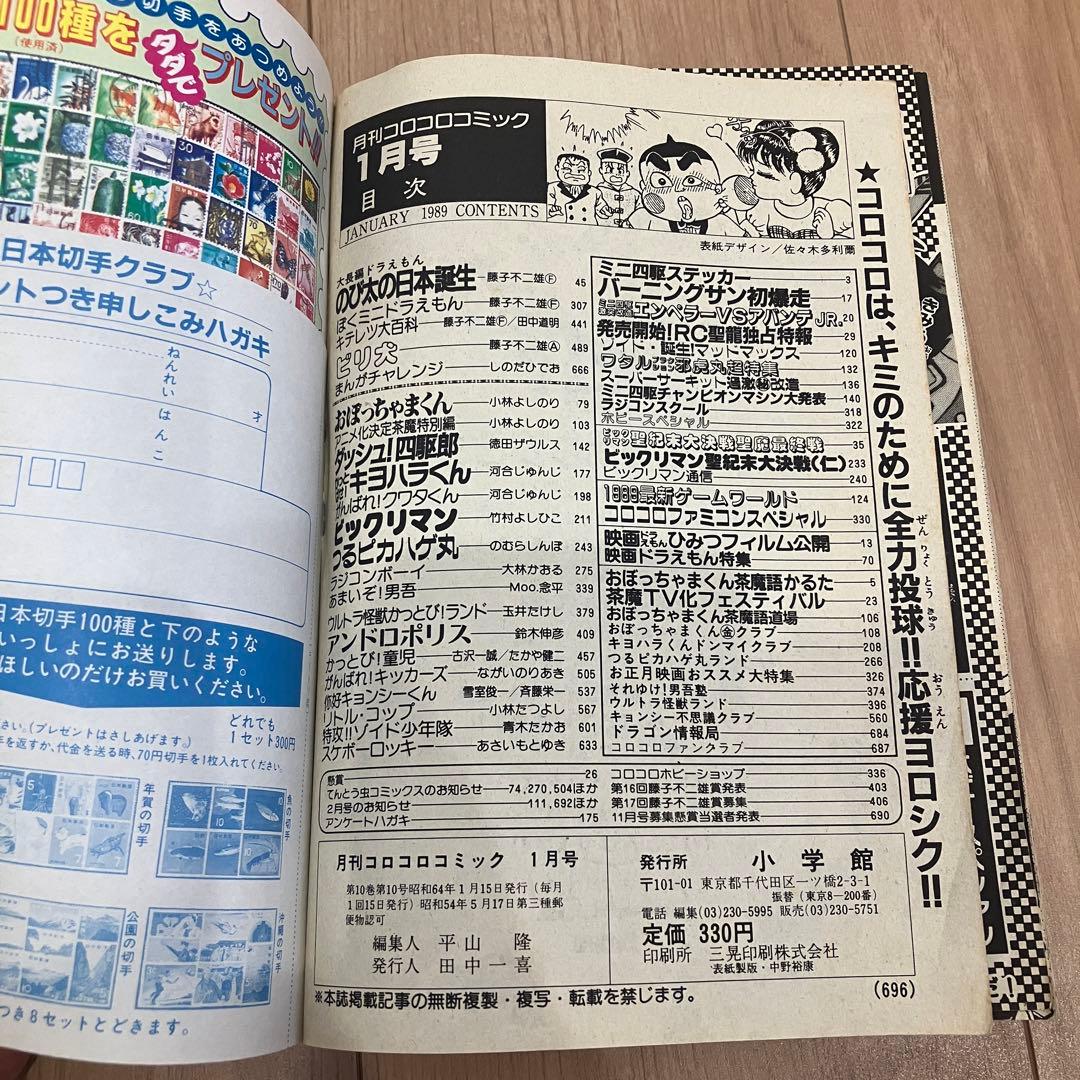 切手をあつめよう
100種を
(使用済)
タダで
プレゼント!!
日本切手クラブ☆
ントつき申しこみハガキ
ねんれい
才
はんこ
日本切手100種と下のような
いっしょにお送りします。
ほしいのだけお買いください。
ださい。(プレゼントはさしあげます。)
手を返すか、代金を送る時、70円切手を1枚入れてください。
どれでも
1セット300円
年賀の切手
魚の切手
公園の切手
沖縄の切手
つき8セットとどきます。
月刊コロコロコミック
1月号
目次
JANUARY 1989 CONTENTS
表紙デザイン/佐々木多利爾
大長編ドラえもん
のび太の日本誕生 藤子不二雄Ⓕ 45
ぼくミニドラえもん 藤子不二雄Ⓕ 307
キテレツ大百科 藤子不二雄Ⓕ/田中道明 441
ビリ犬 藤子不二雄Ⓐ 489
まんがチャレンジ しのだひでお 666
おぼっちゃまくん 小林よしのり 79
アニメ化決定茶魔特別編 小林よしのり 103
ダッシュ!四駆郎 徳田ザウルス 142
キヨハラくん 河合じゅんじ 177
がんばれ!クワタくん 河合じゅんじ 198
ビックリマン 竹村よしひこ 211
つるピカハゲ丸 のむらしんぼ 243
ラジコンボーイ 大林かおる 275
あまいぞ!男吾 Moo.念平 339
ウルトラ怪獣かっとび!ランド 玉井たけし 379
アンドロポリス 鈴木伸彦 409
かっとび!童児 古沢一誠/たかや健二 457
がんばれ!キッカーズ ながいのりあき 505
你好キョンシーくん 雪室俊一/斉藤栄一 537
リトル・コップ 小林たつよし 567
特攻!!ゾイド少年隊 青木たかお 601
スケボーロッキー あさいもとゆき 633
ミニ四駆ステッカー 3
バーニングサン初爆走 17
エンペラーVSアバンテJR. 20
発売開始!RC聖龍独占特報 29
ゾイド・誕生!マッドマックス 120
ワタル 邪虎丸超特集 132
スーパーサーキット過激㊙改造 136
ミニ四駆チャンピオンマシン大発表 140
ラジコンスクール 318
ホビースペシャル 322
ビックリマン聖紀末大決戦聖魔最終戦 35
ビックリマン聖紀末大決戦(仁) 233
ビックリマン通信 240
1989最新ゲームワールド 124
コロコロファミコンスペシャル 330
映画ドラえもんひみつフィルム公開 13
映画ドラえもん特集 70
おぼっちゃまくん茶魔語かるた 5
茶魔TV化フェスティバル 23
おぼっちゃまくん茶魔語道場 106
おぼっちゃまくん㊎クラブ 108
キヨハラくんドンマイクラブ 208
つるピカハゲ丸ランド 266
お正月映画おススメ大特集 326
それゆけ!男吾塾 374
ウルトラ怪獣ランド 396
キョンシー不思議クラブ 560
ドラゴン情報局 684
コロコロファンクラブ 687
懸賞 26
てんとう虫コミックスのお知らせ 74,270,504ほか
2月号のお知らせ 111,692ほか
アンケートハガキ 175
コロコロホビーショップ 336
第16回藤子不二雄賞発表 403
第17回藤子不二雄賞募集 406
11月号募集懸賞当選者発表 690
月刊コロコロコミック 1月号
第10巻第10号昭和64年1月15日発行(毎月
1回15日発行)昭和54年5月17日第三種郵
便物認可
編集人 平山 隆
発行人 田中一喜
発行所 小学館
〒101-01 東京都千代田区一ツ橋2-3-1
振替(東京8-200番)
電話 編集(03)230-5995 販売(03)230-5751
定価 330円
印刷所 三晃印刷株式会社
表紙製版・中野裕康
※本誌掲載記事の無断複製・複写・転載を禁じます。
(696)
★コロコロは、キミのために全力投球!!応援ヨロシク!!
ぜんりょくとうきゅう
おうえん